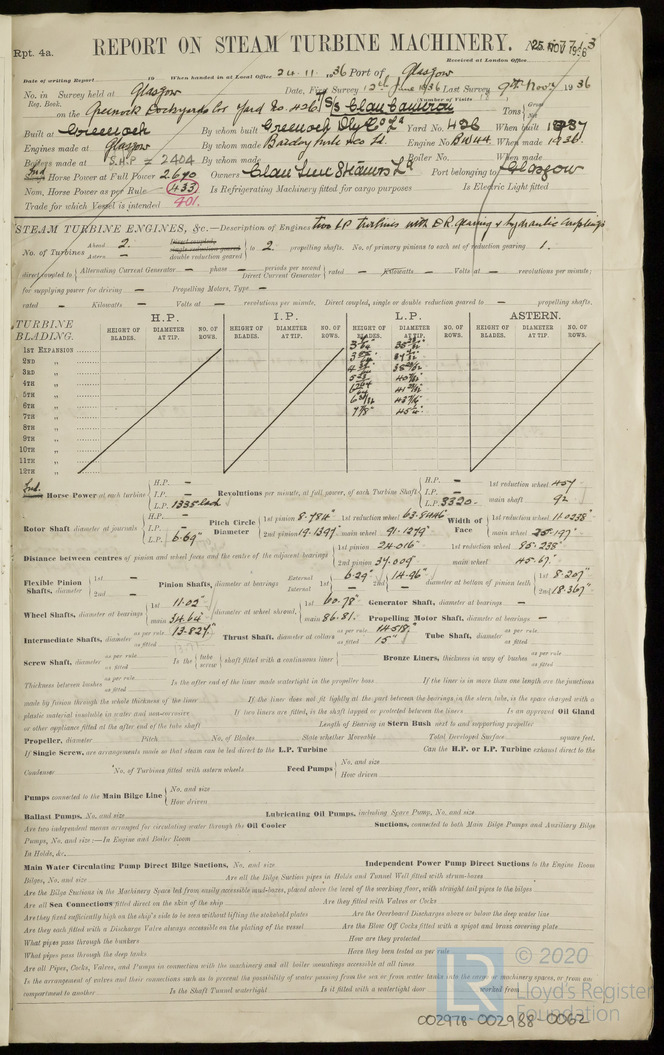 Rpt. 4a.
REPORT ON STEAM TURBINE MACHINERY.
25 NOV 1936
Received at London Office
Date of writing Report 19 When handed in at Local Office 24.11.1936 Port of Glasgow
No. in Survey held at Glasgow Date, First Survey 12th June 1936 Last Survey 9th Nov 1936
Reg. Book. Number of Visits
on the Greenock Dockyards Cos Yard No. 426 S/S Clan Cameron Tons Gross Net
Built at Greenock By whom built Greenock Dkyd Co Ld Yard No. 426 When built 1937
Engines made at Glasgow By whom made Barclay Curle & Co Ld. Engine No. BW44 When made 1936.
Boilers made at By whom made Boiler No. When made
S.H.P = 2404
Ind. Horse Power at Full Power 2670 Owners Clan Line Steamers Ld Port belonging to Glasgow
Nom. Horse Power as per Rule 433 Is Refrigerating Machinery fitted for cargo purposes Is Electric Light fitted
401.
Trade for which Vessel is intended
STEAM TURBINE ENGINES, &c.—Description of Engines two LP turbines with D.R. gearing & hydraulic couplings
No. of Turbines Ahead 2. Astern — Direct coupled, single reduction geared double reduction geared to 2. propelling shafts. No. of primary pinions to each set of reduction gearing 1.
direct coupled to Alternating Current Generator — phase — periods per second Direct Current Generator rated — Kilowatts — Volts at — revolutions per minute;
for supplying power for driving — Propelling Motors, Type —
rated — Kilowatts — Volts at — revolutions per minute. Direct coupled, single or double reduction geared to — propelling shafts.
TURBINE BLADING. H.P. I.P. L.P. ASTERN.
HEIGHT OF BLADES. DIAMETER AT TIP. NO. OF ROWS. HEIGHT OF BLADES. DIAMETER AT TIP. NO. OF ROWS. HEIGHT OF BLADES. DIAMETER AT TIP. NO. OF ROWS. HEIGHT OF BLADES. DIAMETER AT TIP. NO. OF ROWS.
1ST EXPANSION
2ND „
3RD „
4TH „
5TH „
6TH „
7TH „
8TH „
9TH „
10TH „
11TH „
12TH „
Ind. Horse Power at each turbine H.P. — I.P. — L.P. 1335 each Revolutions per minute, at full power, of each Turbine Shaft H.P. — I.P. — L.P. 3320 1st reduction wheel 457 main shaft 92
Rotor Shaft diameter at journals H.P. — I.P. — L.P. 6.69" Pitch Circle Diameter 1st pinion 8.784" 1st reduction wheel 63.8446" 2nd pinion 19.1397" main wheel 91.1279" Width of Face 1st reduction wheel 11.0238" main wheel 25.197"
Distance between centres of pinion and wheel faces and the centre of the adjacent bearings 1st pinion 24.016" 1st reduction wheel 85.238" 2nd pinion 37.009" main wheel 45.67"
Flexible Pinion Shafts, diameter 1st — 2nd — Pinion Shafts, diameter at bearings External 1st 6.29" 2nd 14.96" Internal 1st — diameter at bottom of pinion teeth 1st 8.207" 2nd 18.367"
Wheel Shafts, diameter at bearings 1st 11.02" main 34.64" diameter at wheel shroud, 1st 60.78" main 86.81 Generator Shaft, diameter at bearings —
Propelling Motor Shaft, diameter at bearings —
Intermediate Shafts, diameter as per rule 13.827" as fitted Thrust Shaft, diameter at collars as per rule 14.518" as fitted 15" Tube Shaft, diameter as per rule as fitted
Screw Shaft, diameter as per rule as fitted Is the tube screw shaft fitted with a continuous liner Bronze Liners, thickness in way of bushes as per rule as fitted
Thickness between bushes as per rule as fitted Is the after end of the liner made watertight in the propeller boss If the liner is in more than one length are the junctions
made by fusion through the whole thickness of the liner If the liner does not fit tightly at the part between the bearings in the stern tube, is the space charged with a
plastic material insoluble in water and non-corrosive If two liners are fitted, is the shaft lapped or protected between the liners Is an approved Oil Gland
or other appliance fitted at the after end of the tube shaft Length of Bearing in Stern Bush next to and supporting propeller
Propeller, diameter Pitch No. of Blades State whether Moveable Total Developed Surface square feet.
If Single Screw, are arrangements made so that steam can be led direct to the L.P. Turbine Can the H.P. or I.P. Turbine exhaust direct to the
Condenser No. of Turbines fitted with astern wheels Feed Pumps No. and size How driven
Pumps connected to the Main Bilge Line No. and size How driven
Ballast Pumps, No. and size Lubricating Oil Pumps, including Spare Pump, No. and size
Are two independent means arranged for circulating water through the Oil Cooler Suctions, connected to both Main Bilge Pumps and Auxiliary Bilge
Pumps, No. and size:—In Engine and Boiler Room
In Holds, &c.
Main Water Circulating Pump Direct Bilge Suctions, No. and size Independent Power Pump Direct Suctions to the Engine Room
Bilges, No. and size Are all the Bilge Suction pipes in Holds and Tunnel Well fitted with strum-boxes
Are the Bilge Suctions in the Machinery Space led from easily accessible mud-boxes, placed above the level of the working floor, with straight tail pipes to the bilges
Are all Sea Connections fitted direct on the skin of the ship Are they fitted with Valves or Cocks
Are they fixed sufficiently high on the ship's side to be seen without lifting the stokehold plates Are the Overboard Discharges above or below the deep water line
Are they each fitted with a Discharge Valve always accessible on the plating of the vessel Are the Blow Off Cocks fitted with a spigot and brass covering plate
What pipes pass through the bunkers How are they protected
What pipes pass through the deep tanks Have they been tested as per rule
Are all Pipes, Cocks, Valves, and Pumps in connection with the machinery and all boiler mountings accessible at all times
Is the arrangement of valves and their connections such as to prevent the possibility of water passing from the sea or from water tanks into the cargo or machinery spaces, or from one
compartment to another Is the Shaft Tunnel watertight Is it fitted with a watertight door worked from
© 2020
LR Lloyd's Register Foundation
002978-002988-0062